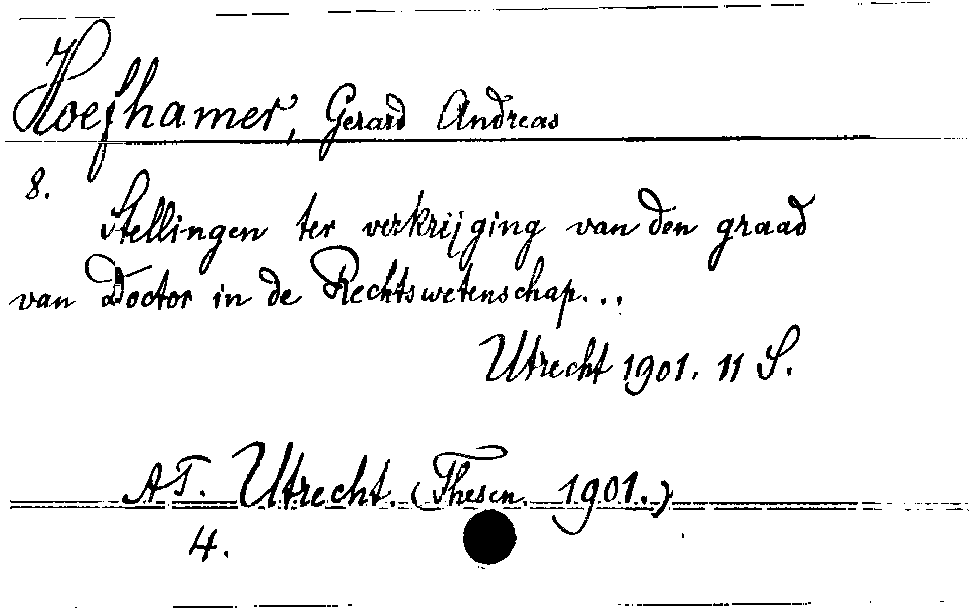 Hoefhamer, Gerard Andreas
8.
Stellingen ter verkrijging van den graad
van Doctor in de Rechtswetenschap...
Utrecht 1901. 11 S.
AT. Utrecht. (Thesen. 1901.)
4.